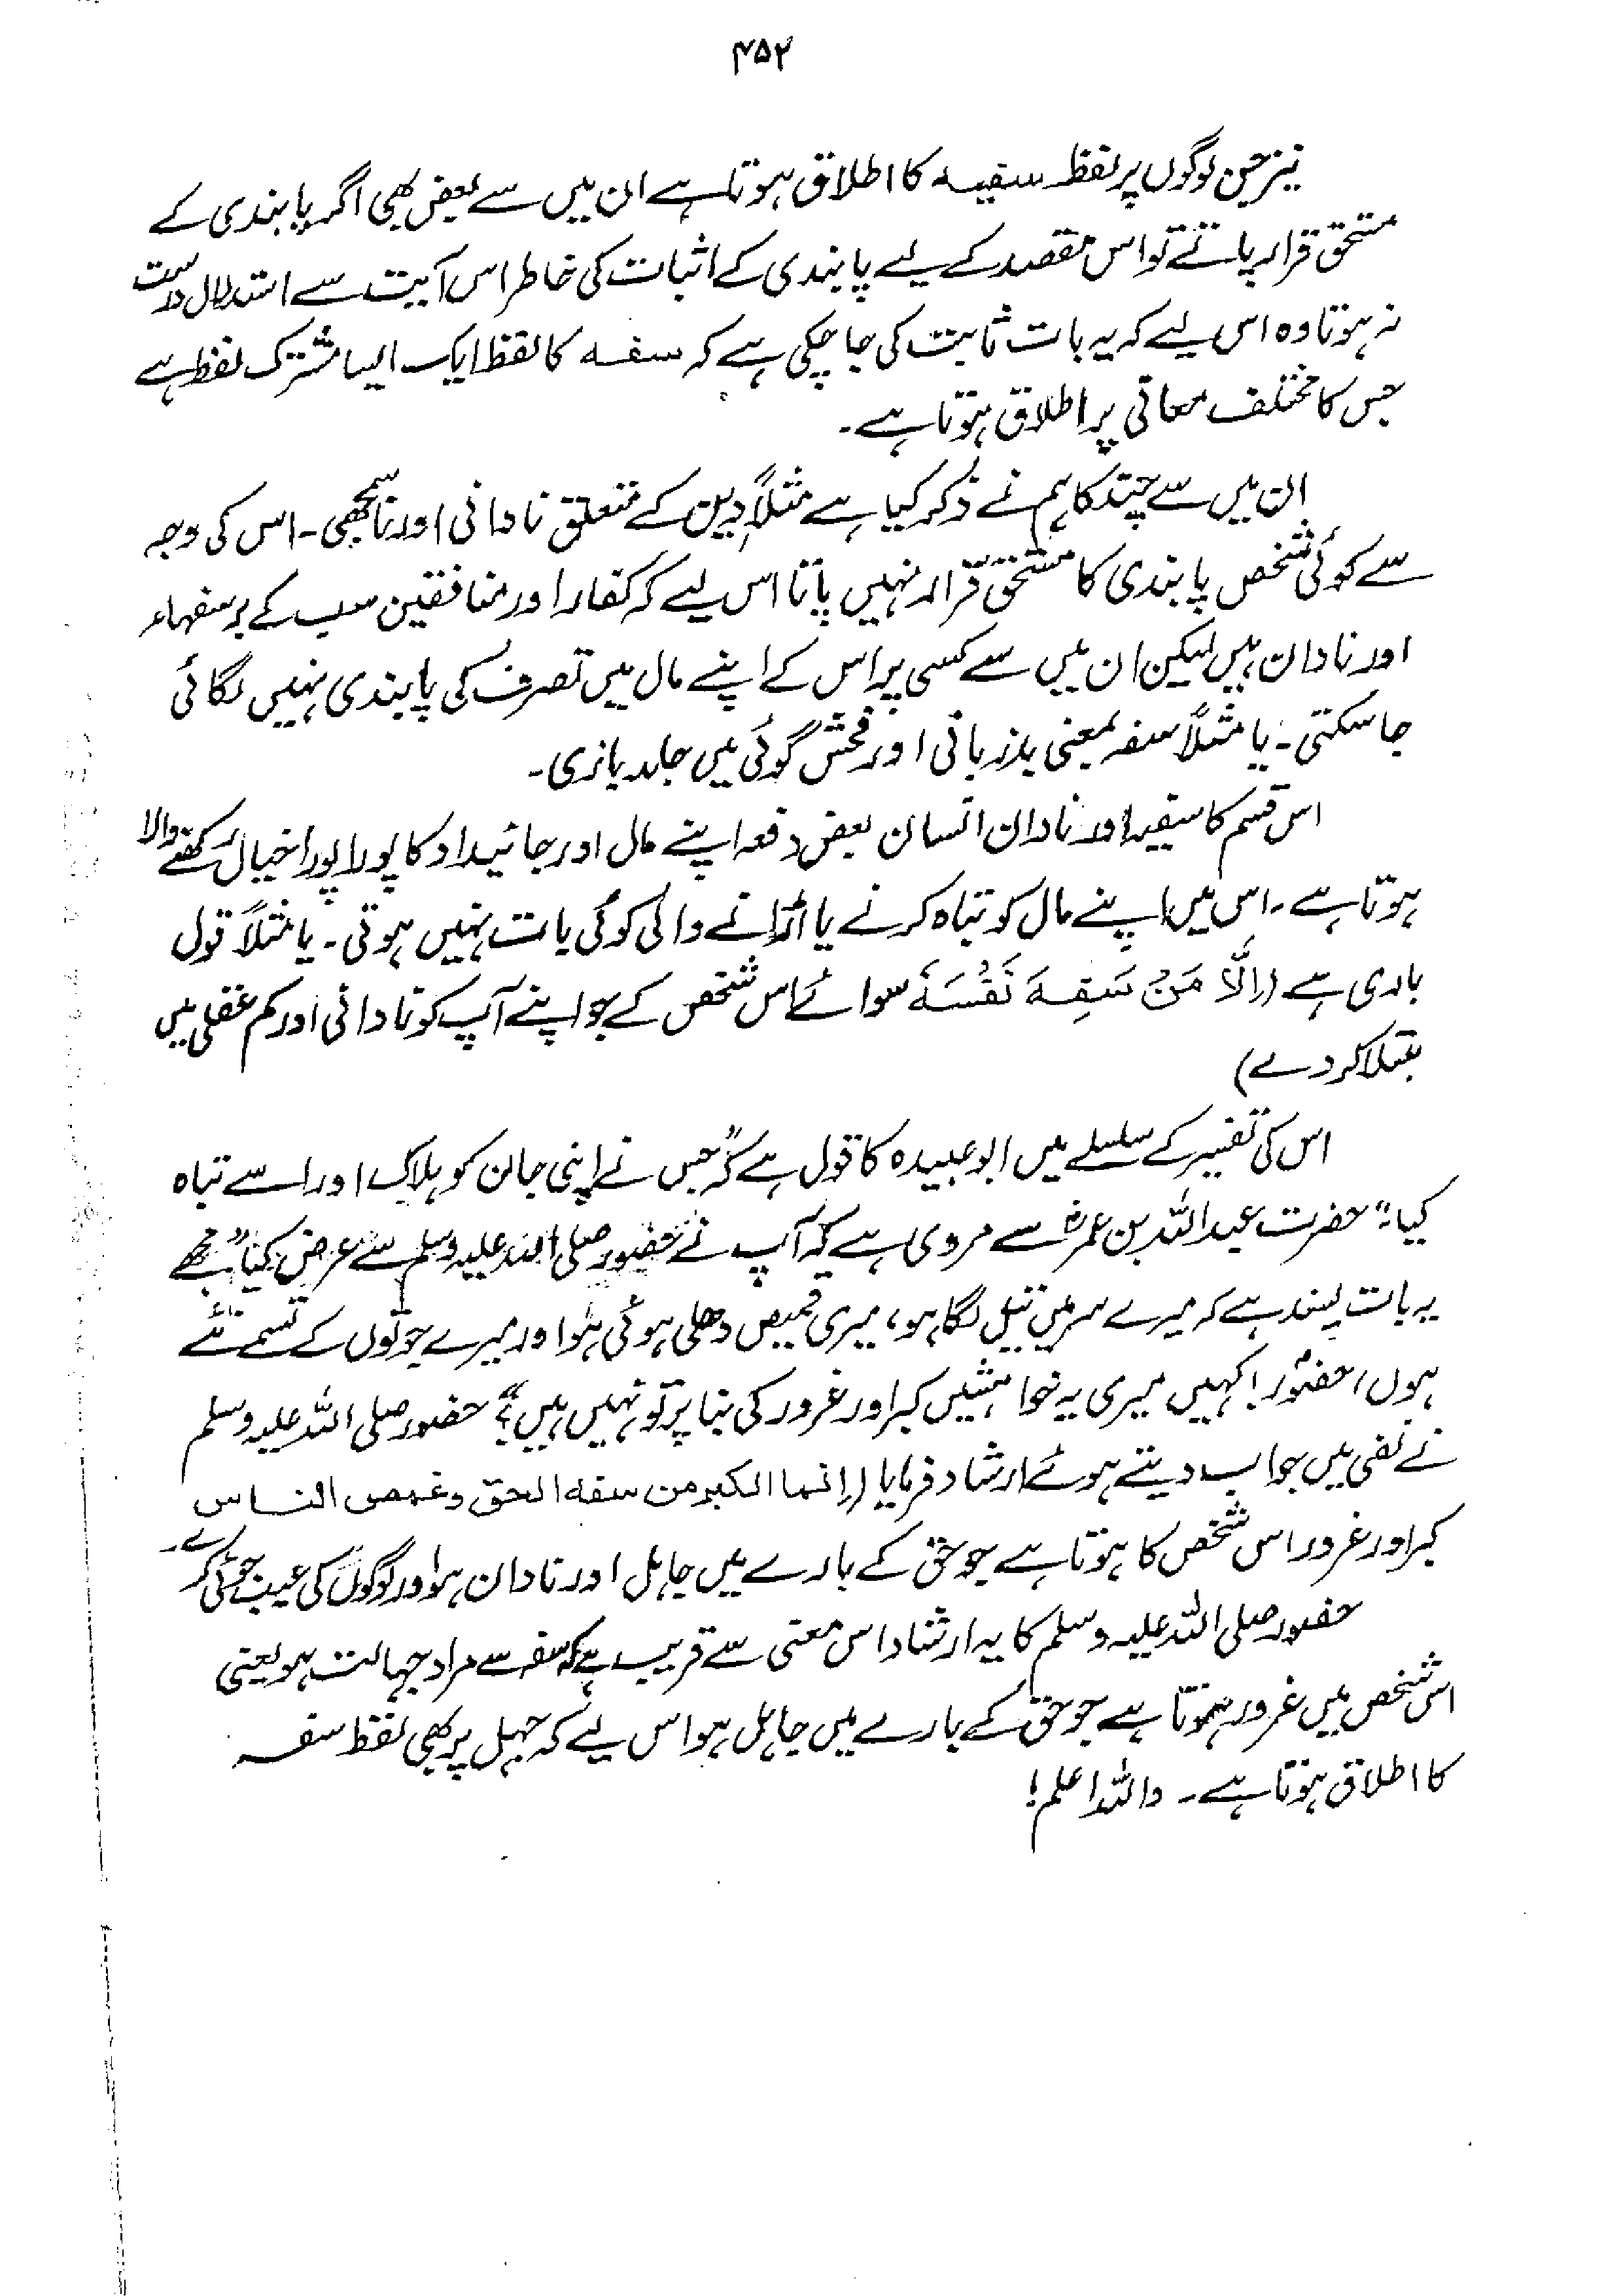 ۴۵۲
نیز جن لوگوں پر لفظ سفیہ کا اطلاق ہوتا ہے ان میں سے بعض بھی اگر پابندی کے
مستحق قرار پاتے تو اس مقصد کے لیے پابندی کے اثبات کی خاطر اس آیت سے استدلال درست
نہ ہوتا وہ اس لیے کہ یہ بات ثابت کی جا چکی ہے کہ سفہ کا لفظ ایک ایسا مشترک لفظ ہے
جس کا مختلف معانی پر اطلاق ہوتا ہے۔
ان میں سے چند کا ہم نے ذکر کیا ہے مثلاً دین کے متعلق نادانی اور ناسمجھی۔ اس کی وجہ
سے کوئی شخص پابندی کا مستحق قرار نہیں پاتا اس لیے کہ کفار اور منافقین سب کے سب سفہاء
اور نادان ہیں لیکن ان میں سے کسی پر اس کے اپنے مال میں تصرف کی پابندی نہیں لگائی
جا سکتی۔ یا مثلاً سفہ بمعنی بدزبانی اور فحش گوئی میں جلد بازی۔
اس قسم کا سفیہ اور نادان انسان بعض دفعہ اپنے مال اور جائیداد کا پورا پورا خیال رکھنے والا
ہوتا ہے۔ اس میں اپنے مال کو تباہ کرنے یا اڑانے والی کوئی بات نہیں ہوتی۔ یا مثلاً قول
باری ہے (اِلَّا مَنْ سَفِهَ نَفْسَهٗ سوائے اس شخص کے جو اپنے آپ کو نادانی اور کم عقلی میں
مبتلا کر دے)
اس کی تفسیر کے سلسلے میں ابو عبیدہ کا قول ہے کہ "جس نے اپنی جان کو ہلاک اور اسے تباہ
کیا۔" حضرت عبداللہ بن عمرؓ سے مروی ہے کہ آپ نے حضور صلی اللہ علیہ وسلم سے عرض کیا "مجھے
یہ بات پسند ہے کہ میرے سر میں تیل لگا ہو، میری قمیص دھلی ہوئی ہو اور میرے جوتوں کے تسمے نئے
ہوں، حضورؐ! کہیں میری یہ خواہشیں کبر اور غرور کی بنا پر تو نہیں ہیں؟" حضور صلی اللہ علیہ وسلم
نے نفی میں جواب دیتے ہوئے ارشاد فرمایا (انما الکبر من سفه الحق وغمص الناس
کبر اور غرور اس شخص کا ہوتا ہے جو حق کے بارے میں جاہل اور نادان ہو اور لوگوں کی عیب جوئی کرے۔
حضور صلی اللہ علیہ وسلم کا یہ ارشاد اس معنی سے قریب ہے کہ سفہ سے مراد جہالت ہو یعنی
اس شخص میں غرور ہوتا ہے جو حق کے بارے میں جاہل ہو اس لیے کہ جہل پر بھی لفظ سفہ
کا اطلاق ہوتا ہے۔ واللہ اعلم!